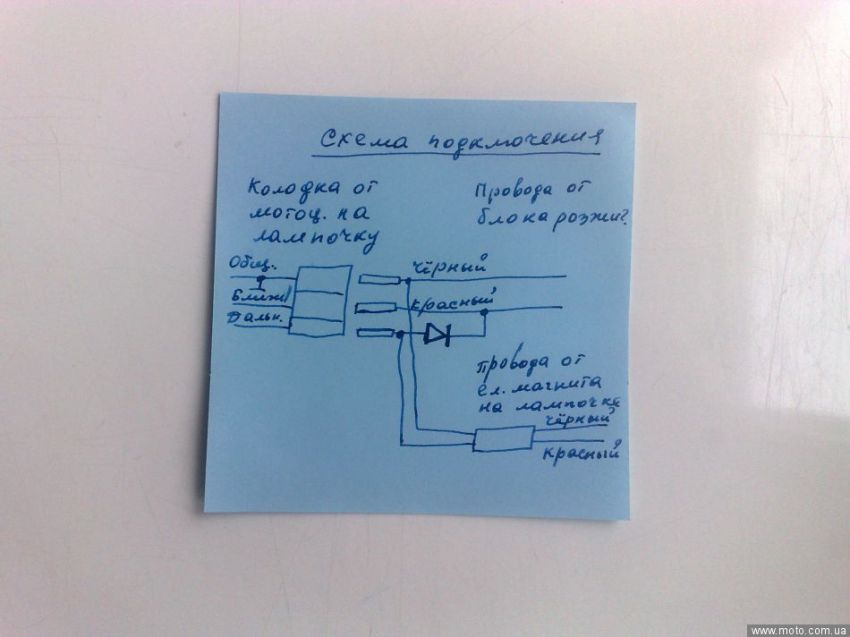 Схема подключения
Колодка от
мотоц. на
лампочку
Провода от
блока розжиг.
Общ.
Ближ.
Дальн.
чёрный
красный
провода от
ел. магнита
на лампочке
чёрный
красный
www.moto.com.ua